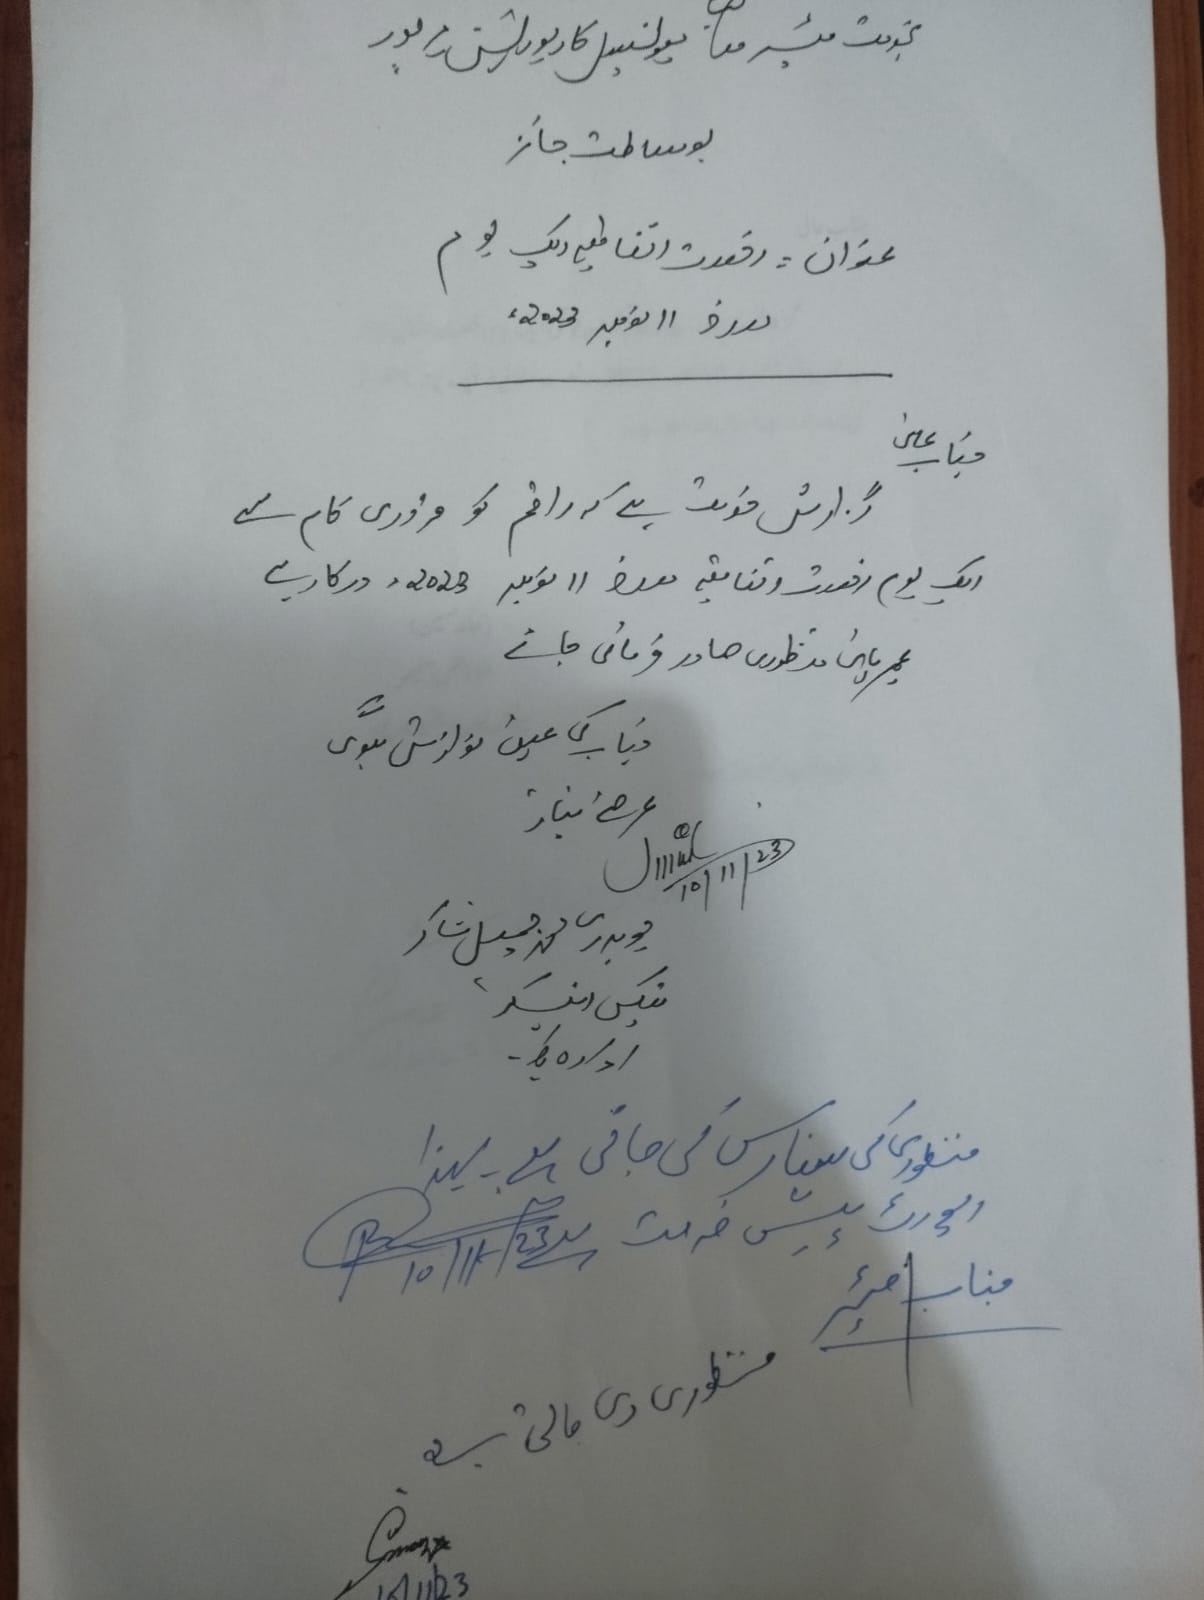 بخدمت میئر صاحب میونسپل کارپوریشن میرپور
بوساطت جائز
عنوان :۔ رخصت اتفاقیہ ایک یوم
مورخہ 11 نومبر 2023ء
جناب عالیٰ
گزارش خدمت ہے کہ راقم کو ضروری کام سے
ایک یوم رخصت اتفاقیہ مورخہ 11 نومبر 2023ء درکار ہے
مہربانی منظوری صادر فرمائی جائے
جناب کی عین نوازش ہوگی
عرضے نیاز
10/11/23
چوہدری محمد جمیل شاکر
ٹیکس انسپکٹر
ادارہ ہذا۔
منظوری کی سفارش کی جاتی ہے۔ لہذا
پیش خدمت ہے
10/11/23
جناب میئر
منظوری دی جاتی ہے
10/11/23